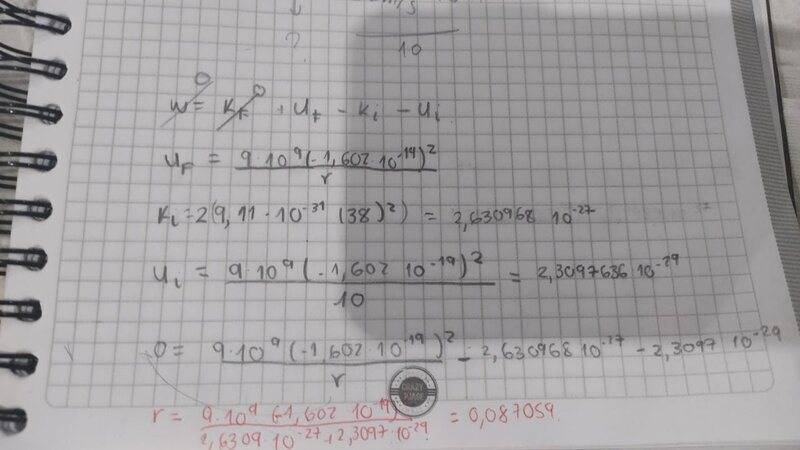 m/s
?
10
0 0
W = Kf + Uf - Ki - Ui
UF = 9·10⁹(-1,602·10⁻¹⁹)²
r
Ki = 2(9,11·10⁻³¹ (38)²) = 2,630968 10⁻²⁷
Ui = 9·10⁹(-1,602 10⁻¹⁹)² = 2,3097636 10⁻²⁹
10
0 = 9·10⁹(-1,602·10⁻¹⁹)² - 2,630968 10⁻²⁷ - 2,3097 10⁻²⁹
r
CRAZY
r = 9·10⁹ (-1,602 10⁻¹⁹)² = 0,087059
2,6309·10⁻²⁷+2,3097·10⁻²⁹